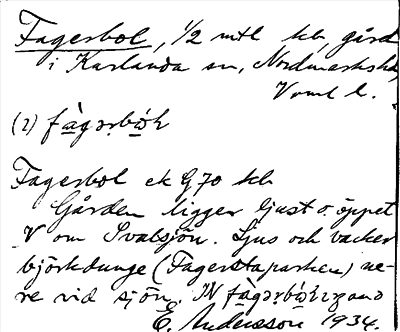 Fagerbol, 1/2 mtl kb, gård
i Karlanda sn, Nordmarkshd
Vrml l.
(2) fàgərbó̱ɫ
Fagerbol ek G70 kb
Gården ligger ljust o. öppet
V om Svalsjön. Ljus och vacker
björkdunge (Fagerstaparken) ne-
re vid sjön. IN
E. Andersson 1934.